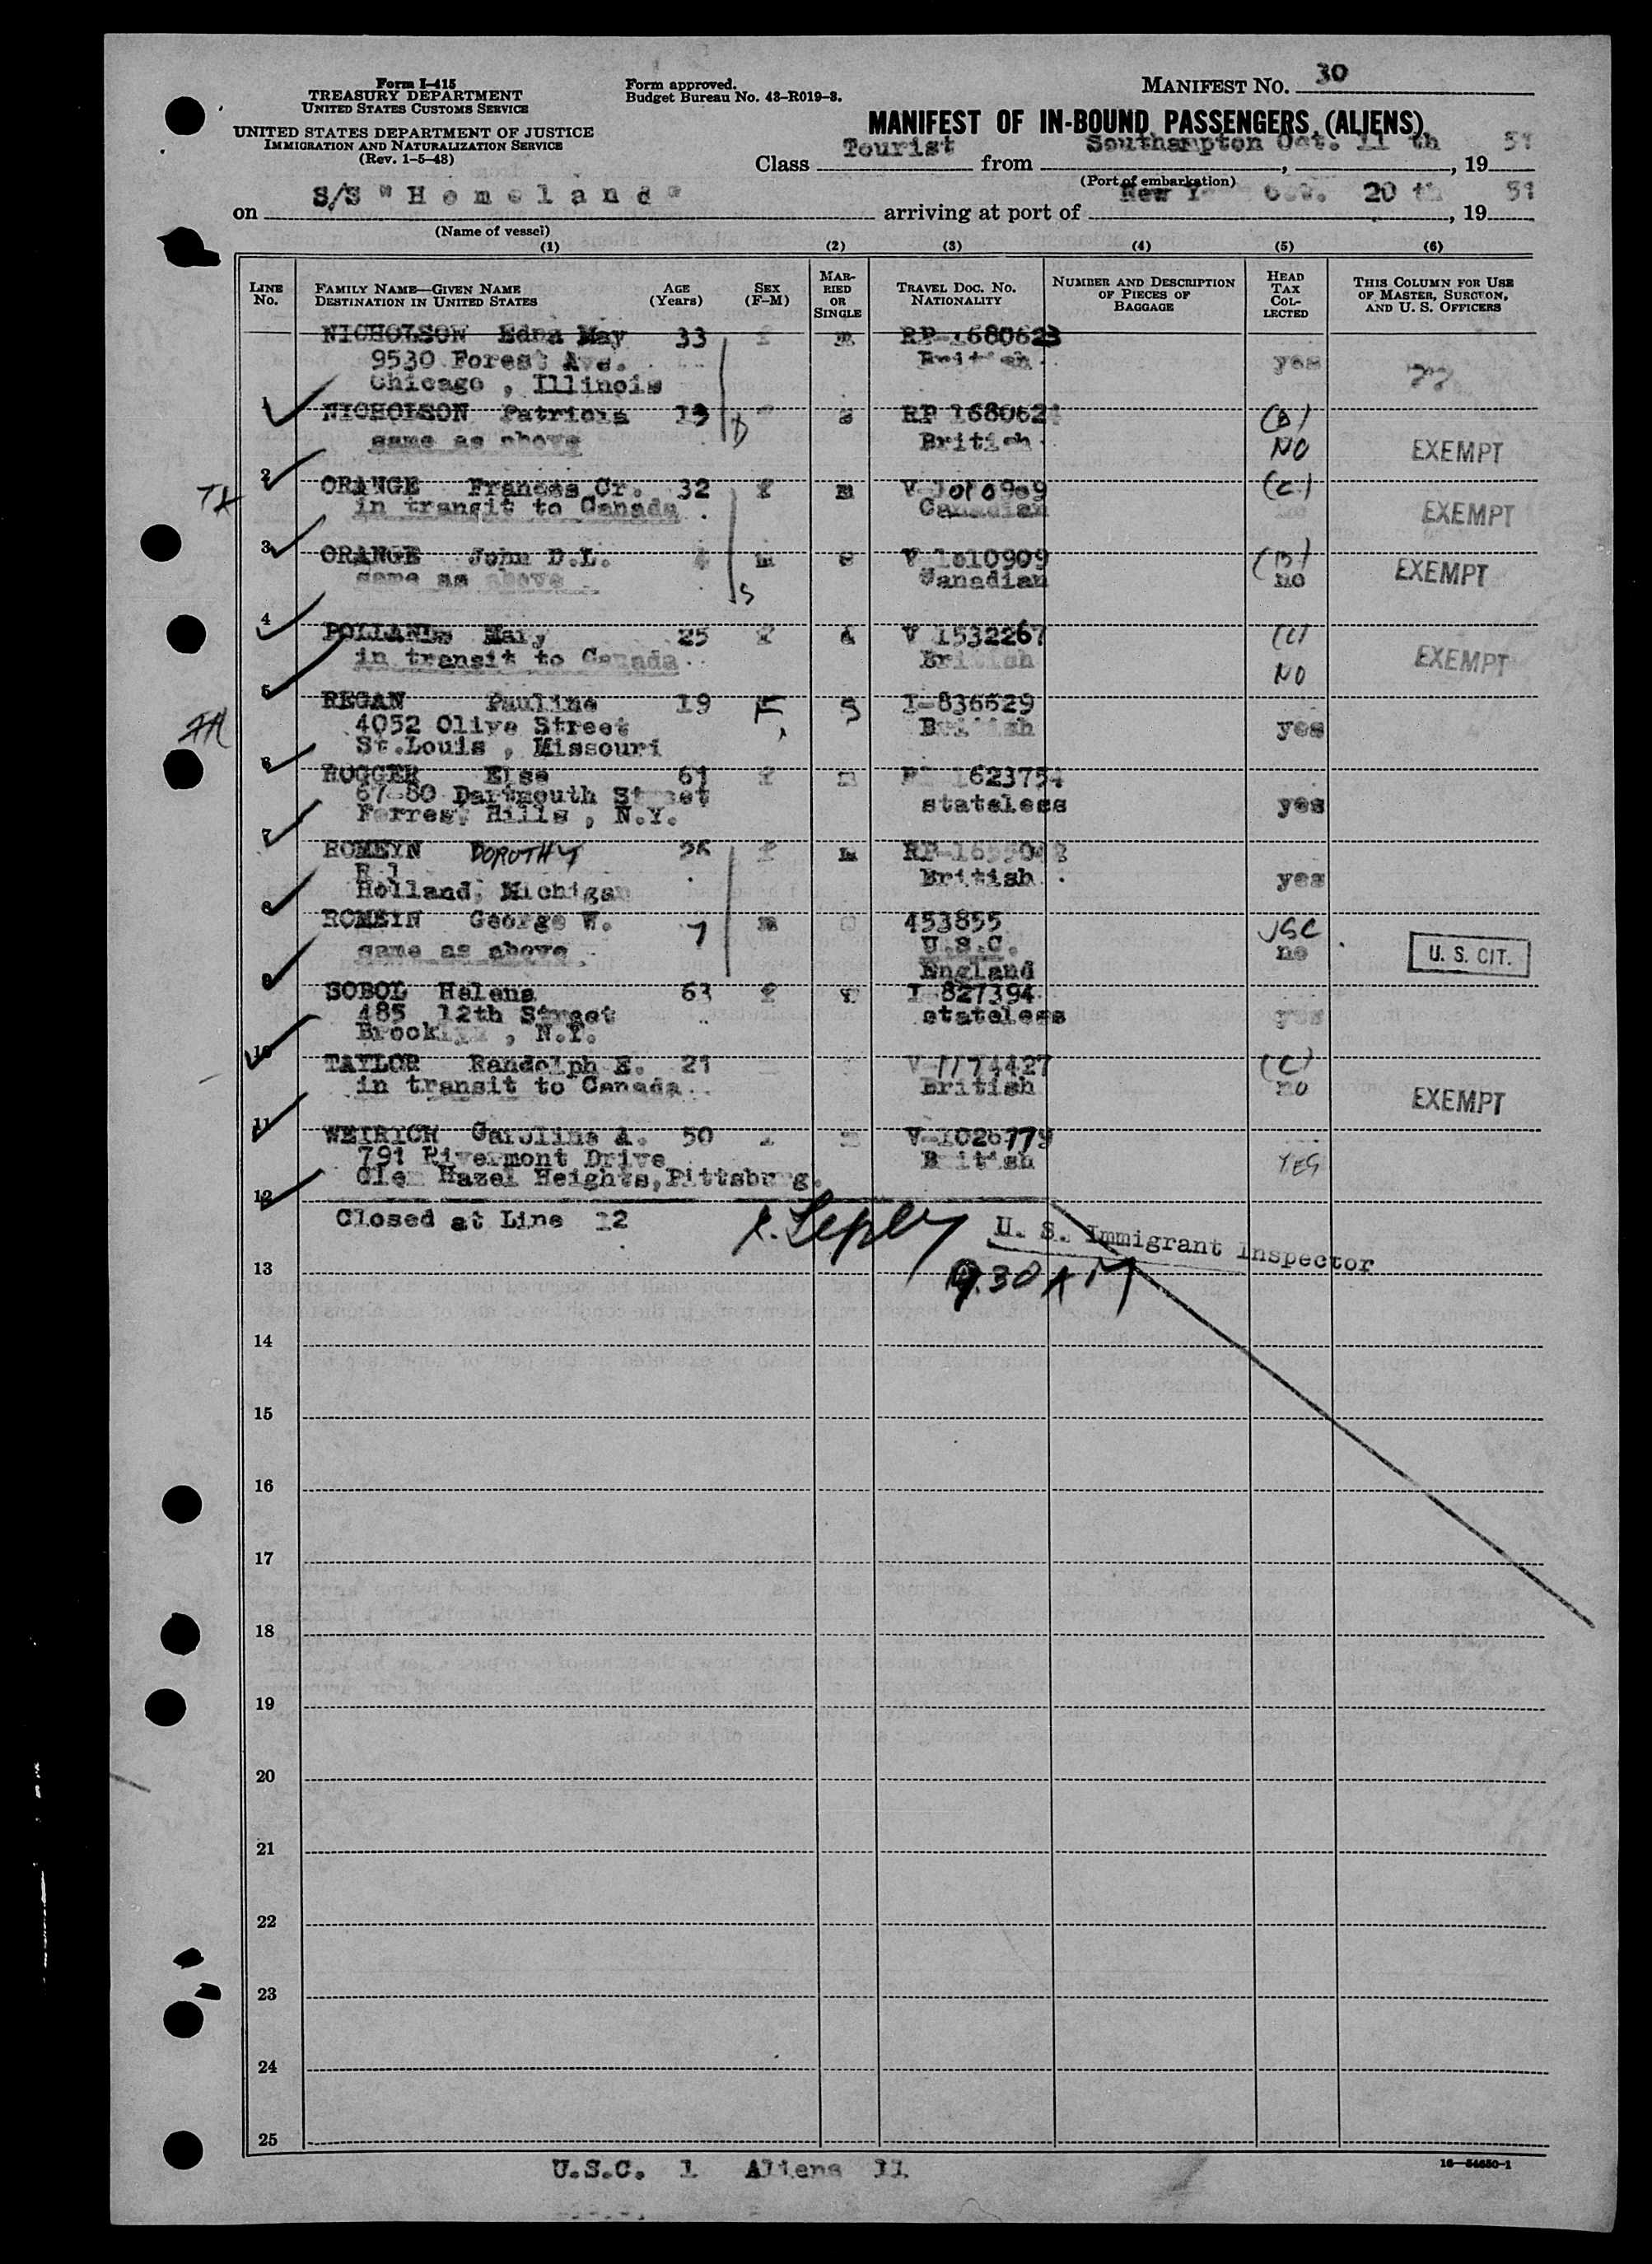 Form I-415
TREASURY DEPARTMENT
UNITED STATES CUSTOMS SERVICE
UNITED STATES DEPARTMENT OF JUSTICE
IMMIGRATION AND NATURALIZATION SERVICE
(Rev. 1-5-48)
Form approved.
Budget Bureau No. 43-R019-3.
MANIFEST NO. 30
MANIFEST OF IN-BOUND PASSENGERS (ALIENS)
Class Tourist from Southampton Oct. 11 th, 19 51
(Port of embarkation)
on S/S "Homeland" arriving at port of New Y Oct. 20 th, 19 51
(Name of vessel)
(1) (2) (3) (4) (5) (6)
LINE No. FAMILY NAME—GIVEN NAME DESTINATION IN UNITED STATES AGE (Years) SEX (F-M) MARRIED OR SINGLE TRAVEL DOC. NO. NATIONALITY NUMBER AND DESCRIPTION OF PIECES OF BAGGAGE HEAD TAX COLLECTED THIS COLUMN FOR USE OF MASTER, SURGEON, AND U. S. OFFICERS
NICHOLSON Edna May 33 f m RP-1680623
9530 Forest Ave. British yes
Chicago , Illinois
1 NICHOLSON Patricia 13 s RP 1680624 (B)
same as above British NO EXEMPT
2 ORANGE Frances Cr. 32 f m V-1010909 (C)
in transit to Canada Canadian EXEMPT
3 ORANGE John D.L. m s V-1010909 (B)
same as above Canadian no EXEMPT
4 POLLANDs Mary 25 f V 1532267 (C)
in transit to Canada British NO EXEMPT
5 REGAN Pauline 19 F S I-836629
4052 Olive Street British yes
St.Louis , Missouri
6 ROGGER Else 61 f m 1623754
67-80 Dartmouth Street stateless yes
Forrest Hills , N.Y.
7 ROMEYN DOROTHY f m
R 1 British yes
Holland, Michigan
8 ROMEIN George W. 7 m 453855 USC
same as above U.S.C. no U. S. CIT.
England
9 SOBOL Helena 63 f I 827394
485 12th Street stateless yes
Brooklyn , N.Y.
10 TAYLOR Randolph E. 21 V-1174427 (C)
in transit to Canada British no EXEMPT
11 WEIRICH Caroline A. 50 V-1026779
791 Rivermont Drive British YES
Glen Hazel Heights,Pittsburg.
12
Closed at Line 12
U. S. Immigrant Inspector
9.30 AM
13
14
15
16
17
18
19
20
21
22
23
24
25
U.S.C. 1 Aliens 11
16—54650-1